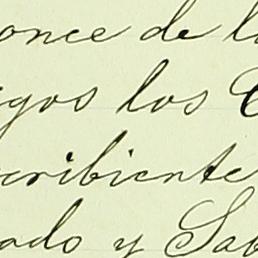 once de l
igos los
cribiente
ado y Sab